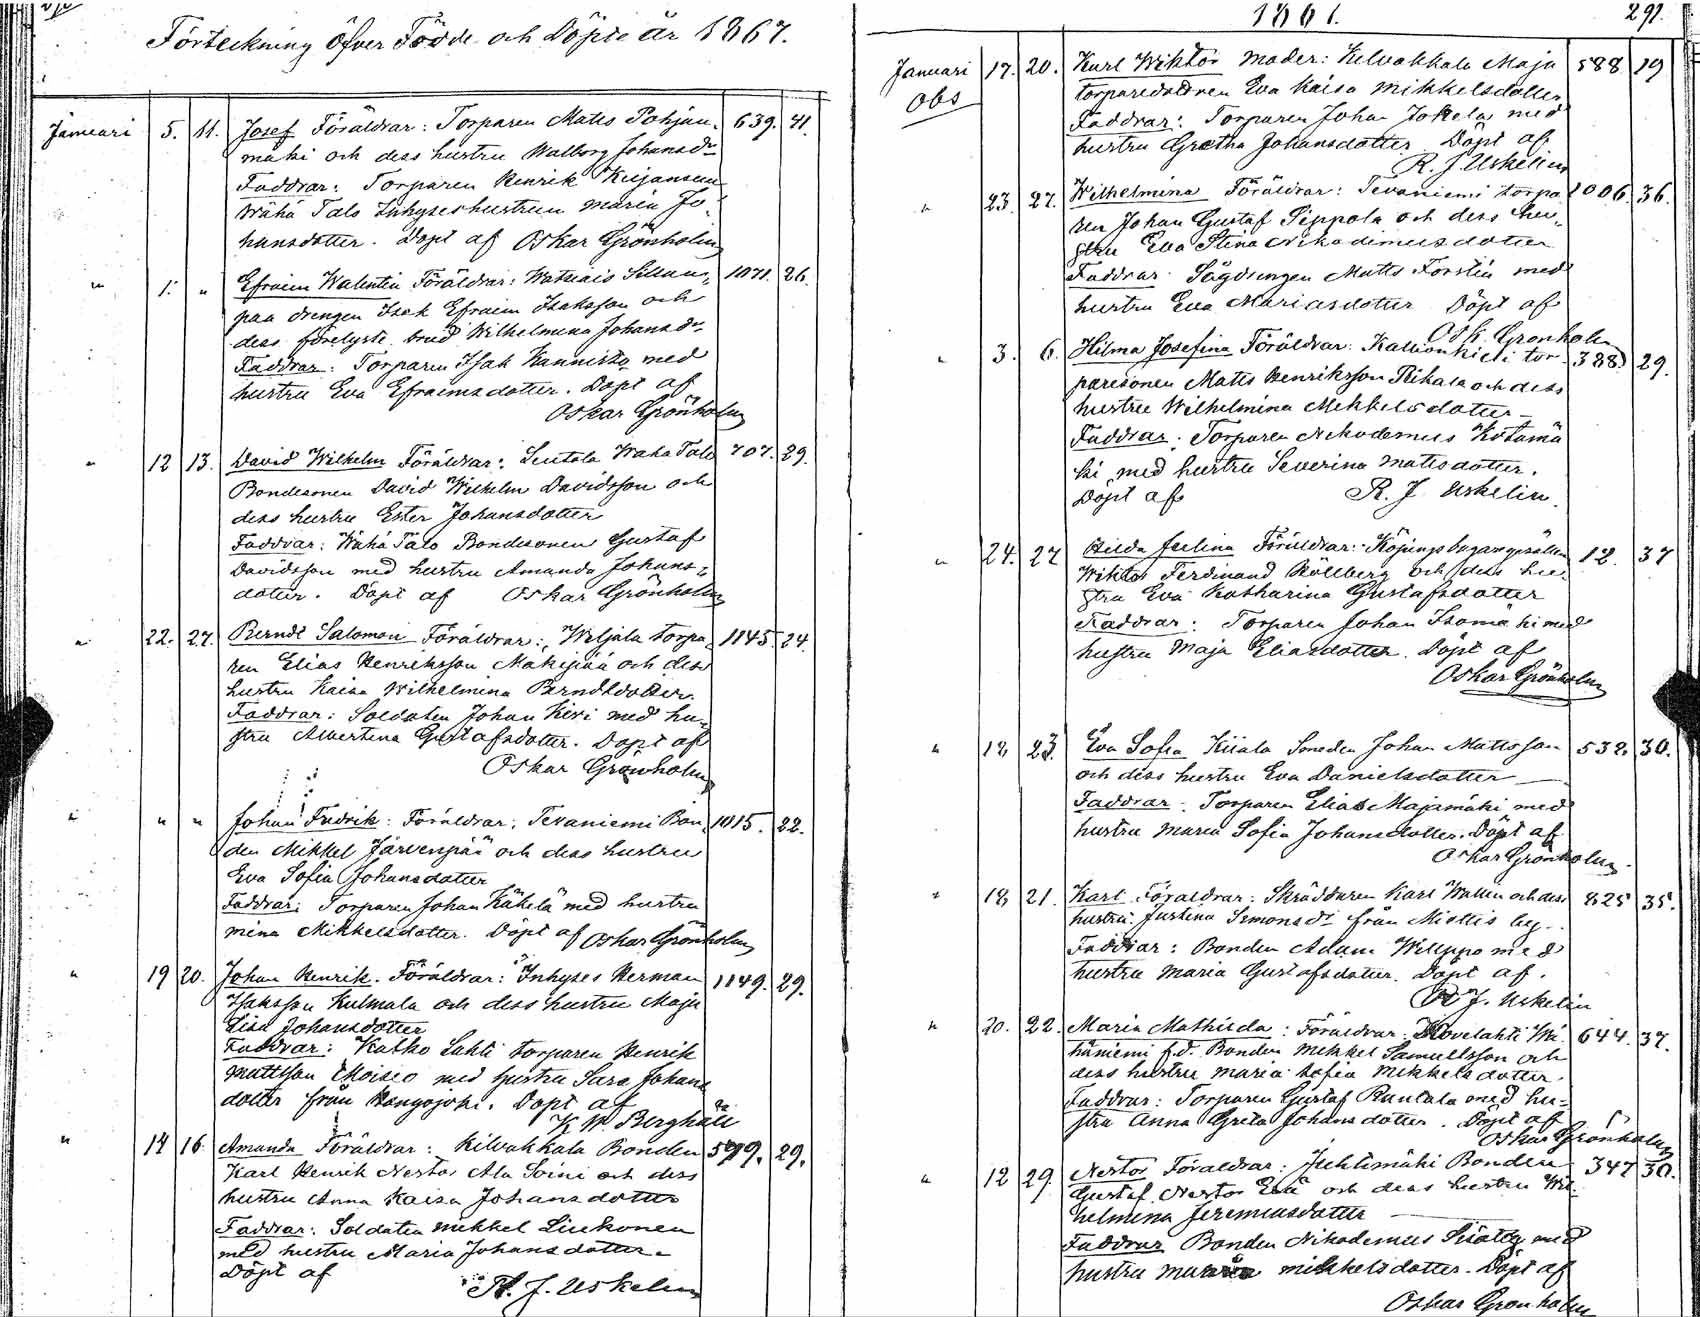 Förteckning öfver Födde och Döpte år 1867.
Januari 5. 11. Josef Föräldrar: Torparen Matts Pohjan- 639. 41.
mäki och dess hustru Walborg Johansdr
Faddrar: Torparen Henrik
Wähä Talo Inhyseshustrun Maria Jo-
hansdotter. Döpt af Oskar Grönholm
" 1. " Efraim Walentin Föräldrar: Watsiais 1071. 26.
paa drengen Isak Efraim Isaksson och
dess förelyste brud Wilhelmina Johansdr
Faddrar: Torparen Isak Kannisto med
hustru Eva Efraimsdotter. Döpt af
Oskar Grönholm
" 12 13. David Wilhelm Föräldrar: Waha Talo 707. 29.
Bondesonen David Wilhelm Davidsson och
dess hustru Ester Johansdotter
Faddrar: Wähä Talo Bondesonen Gustaf
Davidsson med hustru Amanda Johans-
dotter. Döpt af Oskar Grönholm
" 22. 27. Berndt Salomon Föräldrar: Wiljala torpa- 1145. 24.
ren Elias Henriksson Mäkipää och dess
hustru Kaisa Wilhelmina Berndtdotter.
Faddrar: Soldaten Johan Kivi med hu-
stru Albertina Gustafsdotter. Döpt af
Oskar Grönholm
" " " Johan Fredrik: Föräldrar: Tevaniemi Bon- 1015. 22.
den Mikkel Järvenpää och dess hustru
Eva Sofia Johansdotter
Faddrar: Torparen Johan Käkelä med hustru
Mina Mikkelsdotter. Döpt af Oskar Grönholm
" 19 20. Johan Henrik. Föräldrar: Inhyses Herman 1149. 29.
Isaksson Kulmala och dess hustru Maja
Lisa Johansdotter
Faddrar: Katko Lahti torparen Henrik
Mattsson Moisio med hustru Sara Johans
dotter från Kongojoki. Döpt af
K. W. Berghäll
" 14 16. Amanda Föräldrar: Kilvakkala Bonden 599. 29.
Karl Henrik Nestor Ala Soini och dess
hustru Anna Kaisa Johansdotter
Faddrar: Soldaten Mikkel Liukonen
med hustru Maria Johansdotter.
Döpt af R. J. Uskelin
1867. 291.
Januari 17. 20. Karl Wiktor Moder: Kilvakkala Maja 588 19
Obs torparedottren Eva Kaisa Mikkelsdotter
Faddrar: Torparen Johan Jokela med
hustru Gretha Johansdotter Döpt af
R. J. Uskelin
" 23. 27. Wilhelmina Föräldrar: Tevaniemi torpa- 1006. 36.
ren Johan Gustaf Seppola och dess hu-
stru Eva Stina Nikodimusdotter
Faddrar: Sågdrengen Matts Forstén med
hustru Eva Mariasdotter Döpt af
Osk. Grönholm
" 3. 6. Hilma Josefina Föräldrar: Kallionkieli tor- 388) 29.
paresonen Matts Henriksson och dess
hustru Wilhelmina Mikkelsdotter
Faddrar: Torparen Nikodemus Kotamä
ki med hustru Severina Mattsdotter.
Döpt af R. J. Uskelin
" 24. 27 Hilda Julina Föräldrar: 12. 37
Wiktor Ferdinand Röllberg och dess hu-
stru Eva Katharina Gustafsdotter
Faddrar: Torparen Johan Isomä ki med
hustru Maja Eliasdotter. Döpt af
Oskar Grönholm
" 18 23. Eva Sofia Kiiala Smeden Johan Mattsson 532. 30.
och dess hustru Eva Danielsdotter
Faddrar: Torparen Elias Majamäki med
hustru Maria Sofia Johansdotter. Döpt af
Oskar Grönholm.
" 18 21. Karl Föräldrar: Skräddaren Karl Wallin och dess 825 35.
hustru Justina Simonsdr från Miettis by.
Faddrar: Bonden Adam Wileppo med
hustru Maria Gustafsdotter. Döpt af.
R. J. Uskelin
" 20. 22. Maria Mathilda: Föräldrar: Hovelahti Wä- 644. 37.
häniemi f.d. Bonden Mikkel Samuelsson och
dess hustru Maria Sofia Mikkelsdotter.
Faddrar: Torparen Gustaf Rantala med hu-
stru Anna Greta Johansdotter. Döpt af
Oskar Grönholm
" 12 29. Nestor Föräldrar: Juhtimäki Bonden 347 30.
Gustaf Nestor Erä och dess hustru Wil-
helmina Jeremiasdotter
Faddrar Bonden Nikodemus med
hustru Maria Mikkelsdotter. Döpt af
Oskar Grönholm